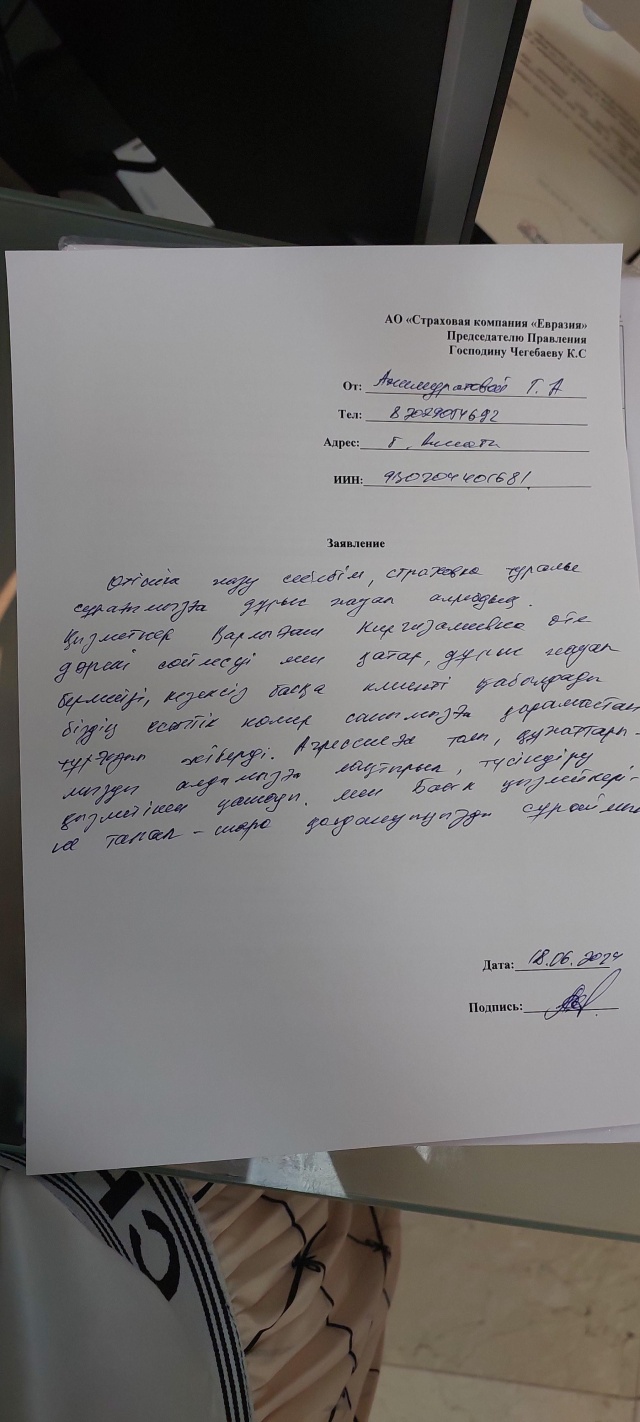 АО «Страховая компания «Евразия»
Председателю Правления
Господину Чегебаеву К.С
От: Ажимуратовой Г. А
Тел: 87029054692
Адрес: г. Алматы
ИИН: 930204401681
Заявление
Өтініш жазу себебім, страховка туралы
сұрағымызға дұрыс жауап алмадық.
Қызметкер Қарлығаш өте
дөрекі сөйлесуі мен қатар, дұрыс жауап
бермейді, кезексіз басқа клиентті қабылдады
біздің есептік номер санымызға қарамастан
тұрғызып жіберді. Агрессияға толы, құжаттары-
мызды алдымызға лақтырып, түсіндіру
қызметінен қашады. мен Банк қызметкері-
не талап - шара қолдануыңызды сұраймын
Дата: 18.06.2024
Подпись: